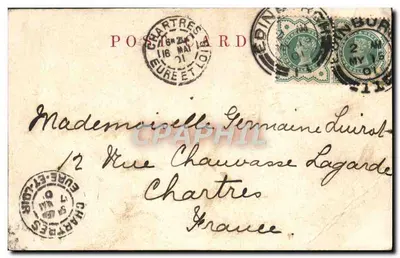 POST CARD
CHARTRES
16 MAI
01
EURE ET LOIR
EDINBURGH
EDINBURGH
MY 15
01
Mademoiselle Germaine
12 Rue Chauvasse Lagarde
Chartres
France.
CHARTRES
EURE-ET-LOIR
CPAPHIL